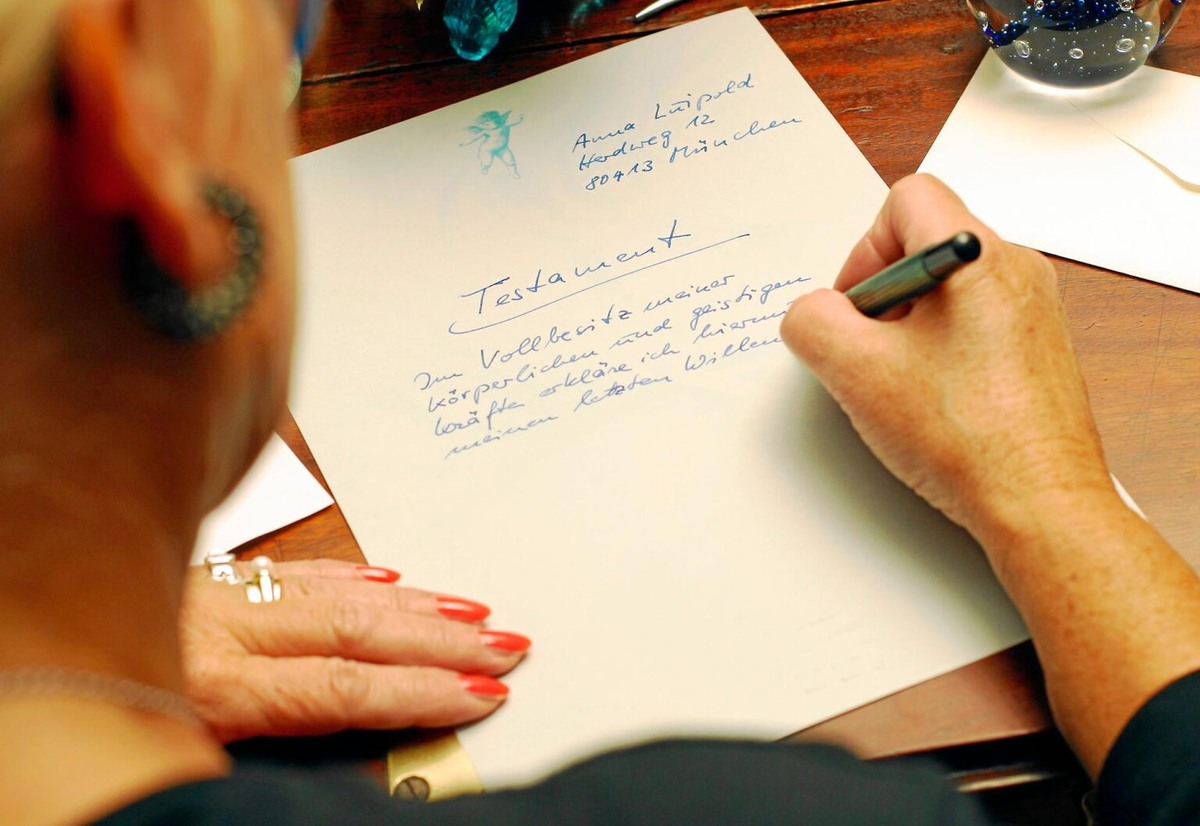 Anna Luipold
Herdweg 12
80413 München
Testament
Im Vollbesitz meiner
körperlichen und geistigen
Kräfte erkläre ich hiermi
meinen letzten Willen